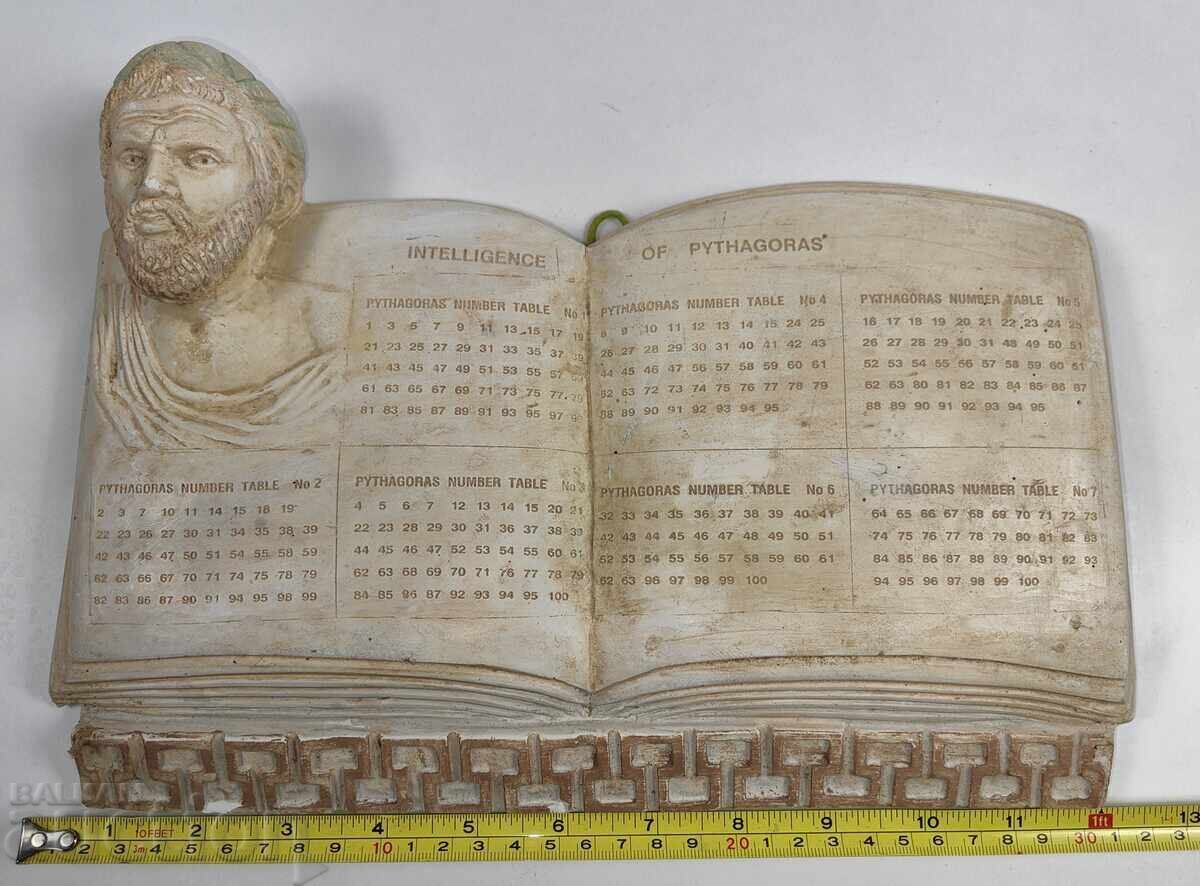 INTELLIGENCE OF PYTHAGORAS
PYTHAGORAS NUMBER TABLE No 1
1 3 5 7 9 11 13 15 17 19
21 23 25 27 29 31 33 35 37 39
41 43 45 47 49 51 53 55 57 59
61 63 65 67 69 71 73 75 77 79
81 83 85 87 89 91 93 95 97 99
PYTHAGORAS NUMBER TABLE No 4
8 9 10 11 12 13 14 15 24 25
26 27 28 29 30 31 40 41 42 43
44 45 46 47 56 57 58 59 60 61
62 63 72 73 74 75 76 77 78 79
88 89 90 91 92 93 94 95
PYTHAGORAS NUMBER TABLE No 5
16 17 18 19 20 21 22 23 24 25
26 27 28 29 30 31 48 49 50 51
52 53 54 55 56 57 58 59 60 61
62 63 80 81 82 83 84 85 86 87
88 89 90 91 92 93 94 95
PYTHAGORAS NUMBER TABLE No 2
2 3 7 10 11 14 15 18 19
22 23 26 27 30 31 34 35 38 39
42 43 46 47 50 51 54 55 58 59
62 63 66 67 70 71 74 75 78 79
82 83 86 87 90 91 94 95 98 99
PYTHAGORAS NUMBER TABLE No 3
4 5 6 7 12 13 14 15 20 21
22 23 28 29 30 31 36 37 38 39
44 45 46 47 52 53 54 55 60 61
62 63 68 69 70 71 76 77 78 79
84 85 86 87 92 93 94 95 100
PYTHAGORAS NUMBER TABLE No 6
32 33 34 35 36 37 38 39 40 41
42 43 44 45 46 47 48 49 50 51
52 53 54 55 56 57 58 59 60 61
62 63 96 97 98 99 100
PYTHAGORAS NUMBER TABLE No 7
64 65 66 67 68 69 70 71 72 73
74 75 76 77 78 79 80 81 82 83
84 85 86 87 88 89 90 91 92 93
94 95 96 97 98 99 100
BALKAN
1 10FEET 2 3 4 5 6 7 8 9 10 11 1ft 13
2 3 3m 4 5 6 7 8 9 10 1 2 3 4 5 6 7 8 9 20 1 2 3 4 5 6 7 8 9 30 1 2 3